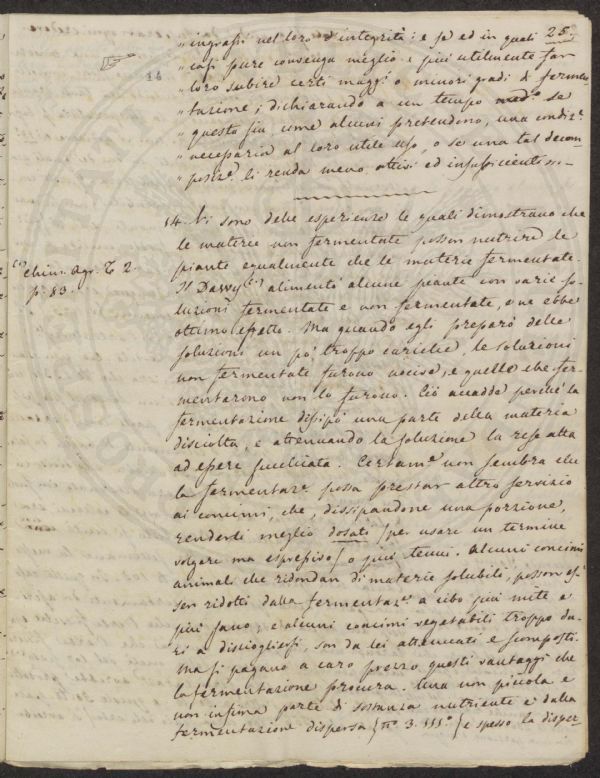 25.
„ ingrassi nel loro d'integrità: e se ed in quali
„ casi pure convenga meglio e più utilmente far
„ loro subire certi magg.i o minori gradi di fermen-
„ tazione; dichiarando a un tempo med.o se
„ questa sia, come alcuni pretendono, una condiz.e
„ necessaria al loro utile uso, o se una tal decom-
„ posiz.e li renda meno attivi ed insufficienti „.
14. Vi sono delle esperienze le quali dimostrano che
le materie non fermentate posson nutrire le
piante egualmente che le materie fermentate.
Il Davvy (a) alimentò alcune piante con varie so-
luzioni fermentate e non fermentate, e ne ebbe
ottimo effetto. Ma quando egli preparò delle
soluzioni un pò troppo cariche, le soluzioni
non fermentate furono nocive, e quelle che fer-
mentarono non lo furono. Ciò accadde perchè la
fermentazione dissipò una parte della materia
disciolta, e attenuando la soluzione la rese atta
ad essere succhiata. Certam.e non sembra che
la fermentaz.e possa prestar altro servizio
ai concimi, che, dissipandone una porzione,
renderli meglio dosati (per usare un termine
volgare ma espressivo) o più tenui. Alcuni concimi
animali che ridondan di materie solubili, posson es-
ser ridotti dalla fermentaz.e a cibo più mite e
più sano; e alcuni concimi vegetabili troppo du-
ri a disciogliersi, son da lei attenuati e scomposti.
Ma si pagano a caro prezzo questi vantaggi che
la fermentazione procura. Una non piccola e
non infima parte di sostanza nutriente è dalla
fermentazione dispersa (n.o 3. III.o) e spesso la disper-
(a) Chim. Agr. T. 2.
p. 83.